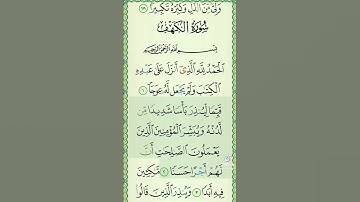 وَلِيٌّ مِنَ الذُّلِّ وَكَبِّرْهُ تَكْبِيرًا ١١١
سُورَةُ الكَهْفِ
بِسْمِ اللَّهِ الرَّحْمَٰنِ الرَّحِيمِ
الْحَمْدُ لِلَّهِ الَّذِي أَنْزَلَ عَلَىٰ عَبْدِهِ
الْكِتَٰبَ وَلَمْ يَجْعَل لَّهُ عِوَجًا ١
قَيِّمًا لِّيُنذِرَ بَأْسًا شَدِيدًا مِّن
لَّدُنْهُ وَيُبَشِّرَ الْمُؤْمِنِينَ الَّذِينَ
يَعْمَلُونَ الصَّٰلِحَٰتِ أَنَّ
لَهُمْ أَجْرًا حَسَنًا ٢ مَّٰكِثِينَ
فِيهِ أَبَدًا ٣ وَيُنذِرَ الَّذِينَ قَالُوا